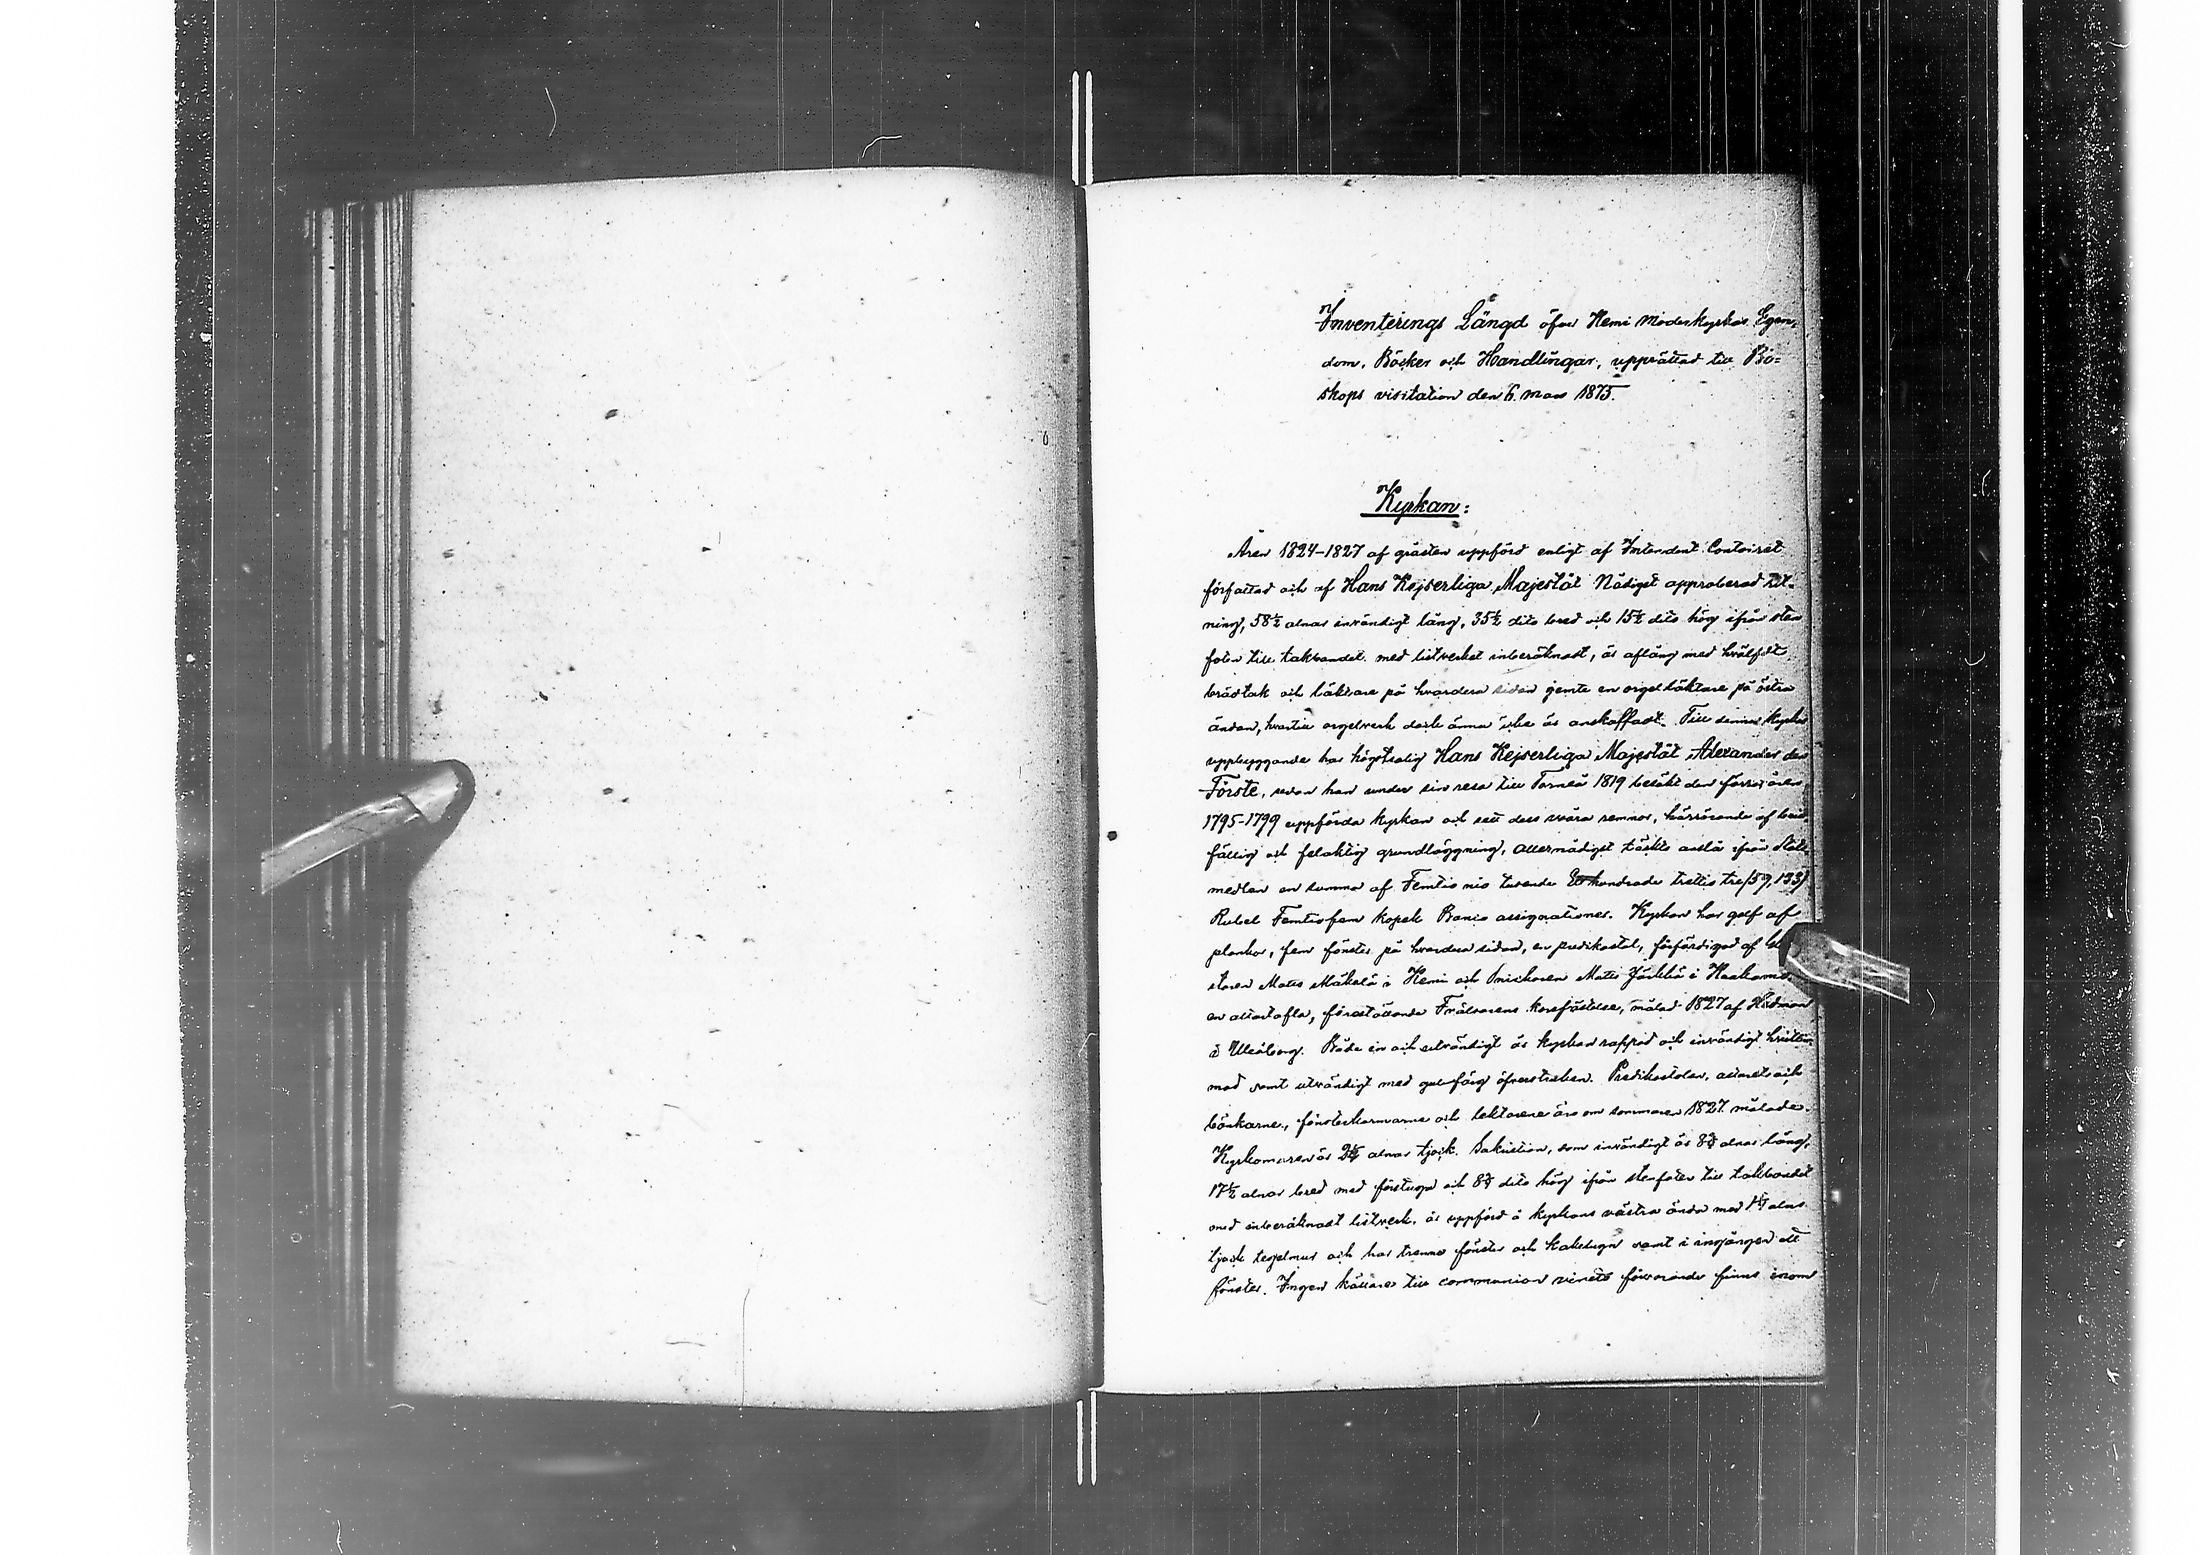 Inventerings Längd öfver Kemi Moderkyrkas Egen-
dom, Böcker och Handlingar, upprättad till Bi-
skops visitation den 6. Mars 1875.
Kyrkan:
Åren 1824-1827 af gråsten uppförd enligt af Intendent Contoiret
författad och af Hans Kejserliga Majestät Nådigst approberad Rit-
ning, 58½ alnar invändigt lång, 35½ dito bred och 15½ dito hög ifrån sten
foten till takbandet med listverket inberäknadt, är aflång med hvälfdt
brädtak och läktare på hvardera sidan jemte en orgelläktare på östra
ändan, hvartill orgelverk dock ännu icke är anskaffadt. Till denna kyrkas
uppbyggande har högtsalig Hans Kejserliga Majestät Alexander den
Förste, sedan han under sin resa till Torneå 1819 besökt den förra, åren
1795-1799 uppförda kyrkan och sett dess svåra remnor, härrörande af bräck
fällig och felaktig grundläggning, allernådigst täckts anslå ifrån Stats
medlen en summa af Femtio nio tusende Ett hundrade trettio tre (59,133)
Rubel Femtiofem kopek Banco assignationer. Kyrkan har golf af
plankor, fem fönster på hvardera sidan, en predikostol, förfärdigad af
Mats Mäkelä i Kemi och Snickaren Mats Järkkä i
en altartafla, föreställande Frälsarens korsfästelse, målad 1827 af Hedman
i Uleåborg. Både in och utvändigt är kyrkan rappad och invändigt
mad samt utvändigt med gul färg öfverstruken. Predikostolen, altaret och
bänkarne, fönsterkarmarne och lektarene äro om sommaren 1827 målade.
Kyrkomuren är 2¼ alnar tjock. Sakristian, som invändigt är alnar lång,
17½ alnar bred med förstuga och dito hög ifrån stenfoten till takbandet
med inberäknadt listverk, är uppförd å kyrkans västra ända med alns
tjock tegelmur och har trenne fönster och kakelugn samt i ingången ett
fönster. Ingen källare till communion vinets förvarande finns inom